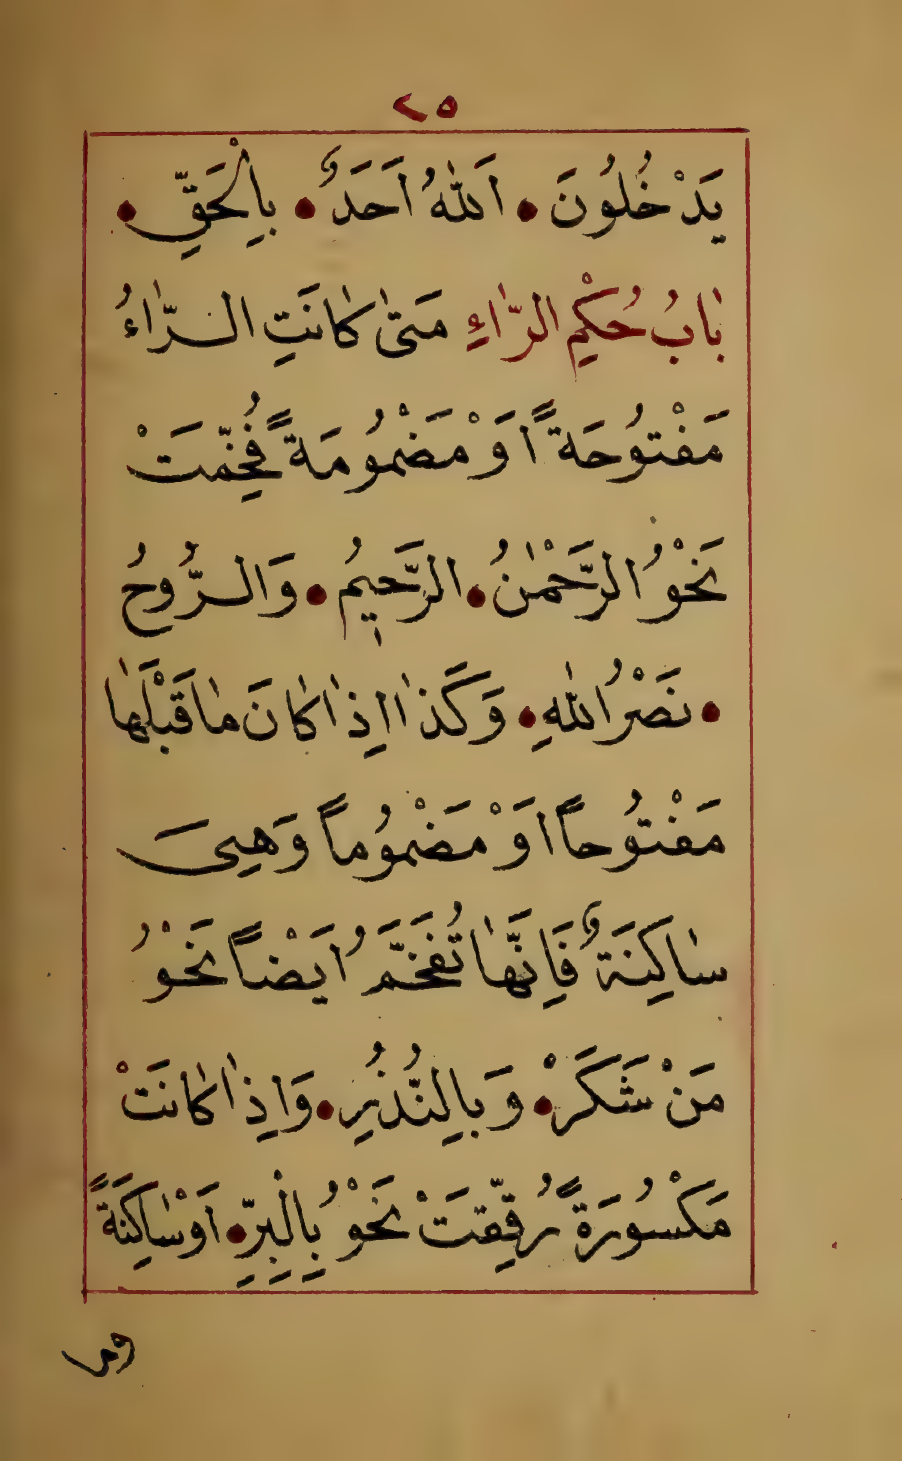 ٢٥
يَدْخُلُونَ • اَللّٰهُ اَحَدٌ • بِالْحَقِّ •
بٰابُ حُكْمِ الرّٰاءِ مَتىٰ كٰانَتِ الرّٰاءُ
مَفْتوُحَةً اَوْ مَضْموُمَةً فُخِّمَتْ
نَحْوُ الرَّحْمٰنُ • الرَّحيٖمُ • وَالرُّوحُ
• نَصْرُ اللّٰهِ • وَكَذٰا اِذٰا كٰانَ مٰا قَبْلَهٰا
مَفْتوُحاً اَوْ مَضْموُماً وَهِىَ
سٰاكِنَةٌ فَاِنَّهٰا تُفَخَّمُ اَيْضاً نَحْوُ
مَنْ شَكَرْ • وَبِالنُّذُرِ • وَاِذٰا كٰانَتْ
مَكْسوُرَةً رُقِّقَتْ نَحْوُ بِالْبِرِّ • اَوْ سٰاكِنَةً